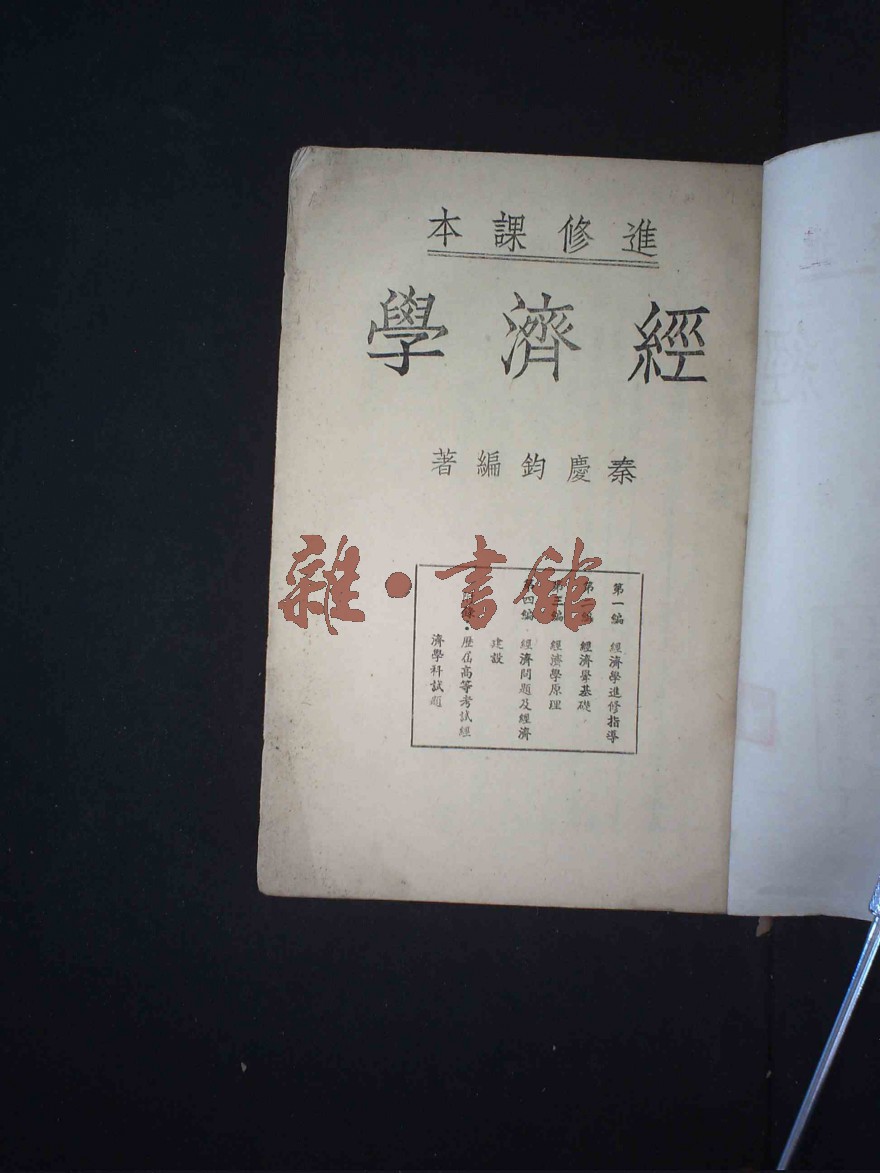 進修課本
經濟學
秦慶鈞編著
第一編 經濟學進修指導
第二編 經濟學基礎
第三編 經濟學原理
第四編 經濟問題及經濟
建設
附錄·歷屆高等考試經
濟學科試題
雜·書館